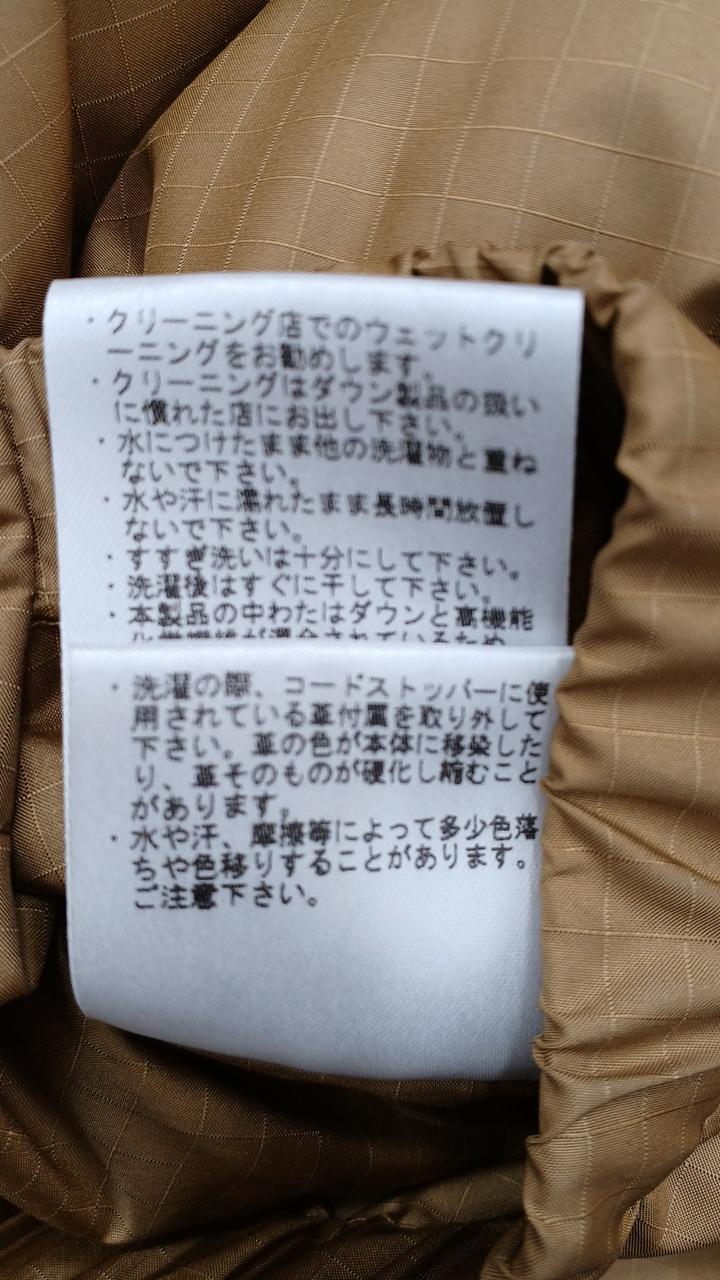 ・クリーニング店でのウェットクリ
ーニングをお勧めします。
・クリーニングはダウン製品の扱い
に慣れた店にお出し下さい。
・水につけたまま他の洗濯物と重ね
ないで下さい。
・水や汗に濡れたまま長時間放置し
ないで下さい。
・すすぎ洗いは十分にして下さい。
・洗濯後はすぐに干して下さい。
・本製品の中わたはダウンと高機能
化学繊維が混合されているため
・洗濯の際、コードストッパーに使
用されている革付属を取り外して
下さい。革の色が本体に移染した
り、革そのものが硬化し縮むこと
があります。
・水や汗、摩擦等によって多少色落
ちや色移りすることがあります。
ご注意下さい。